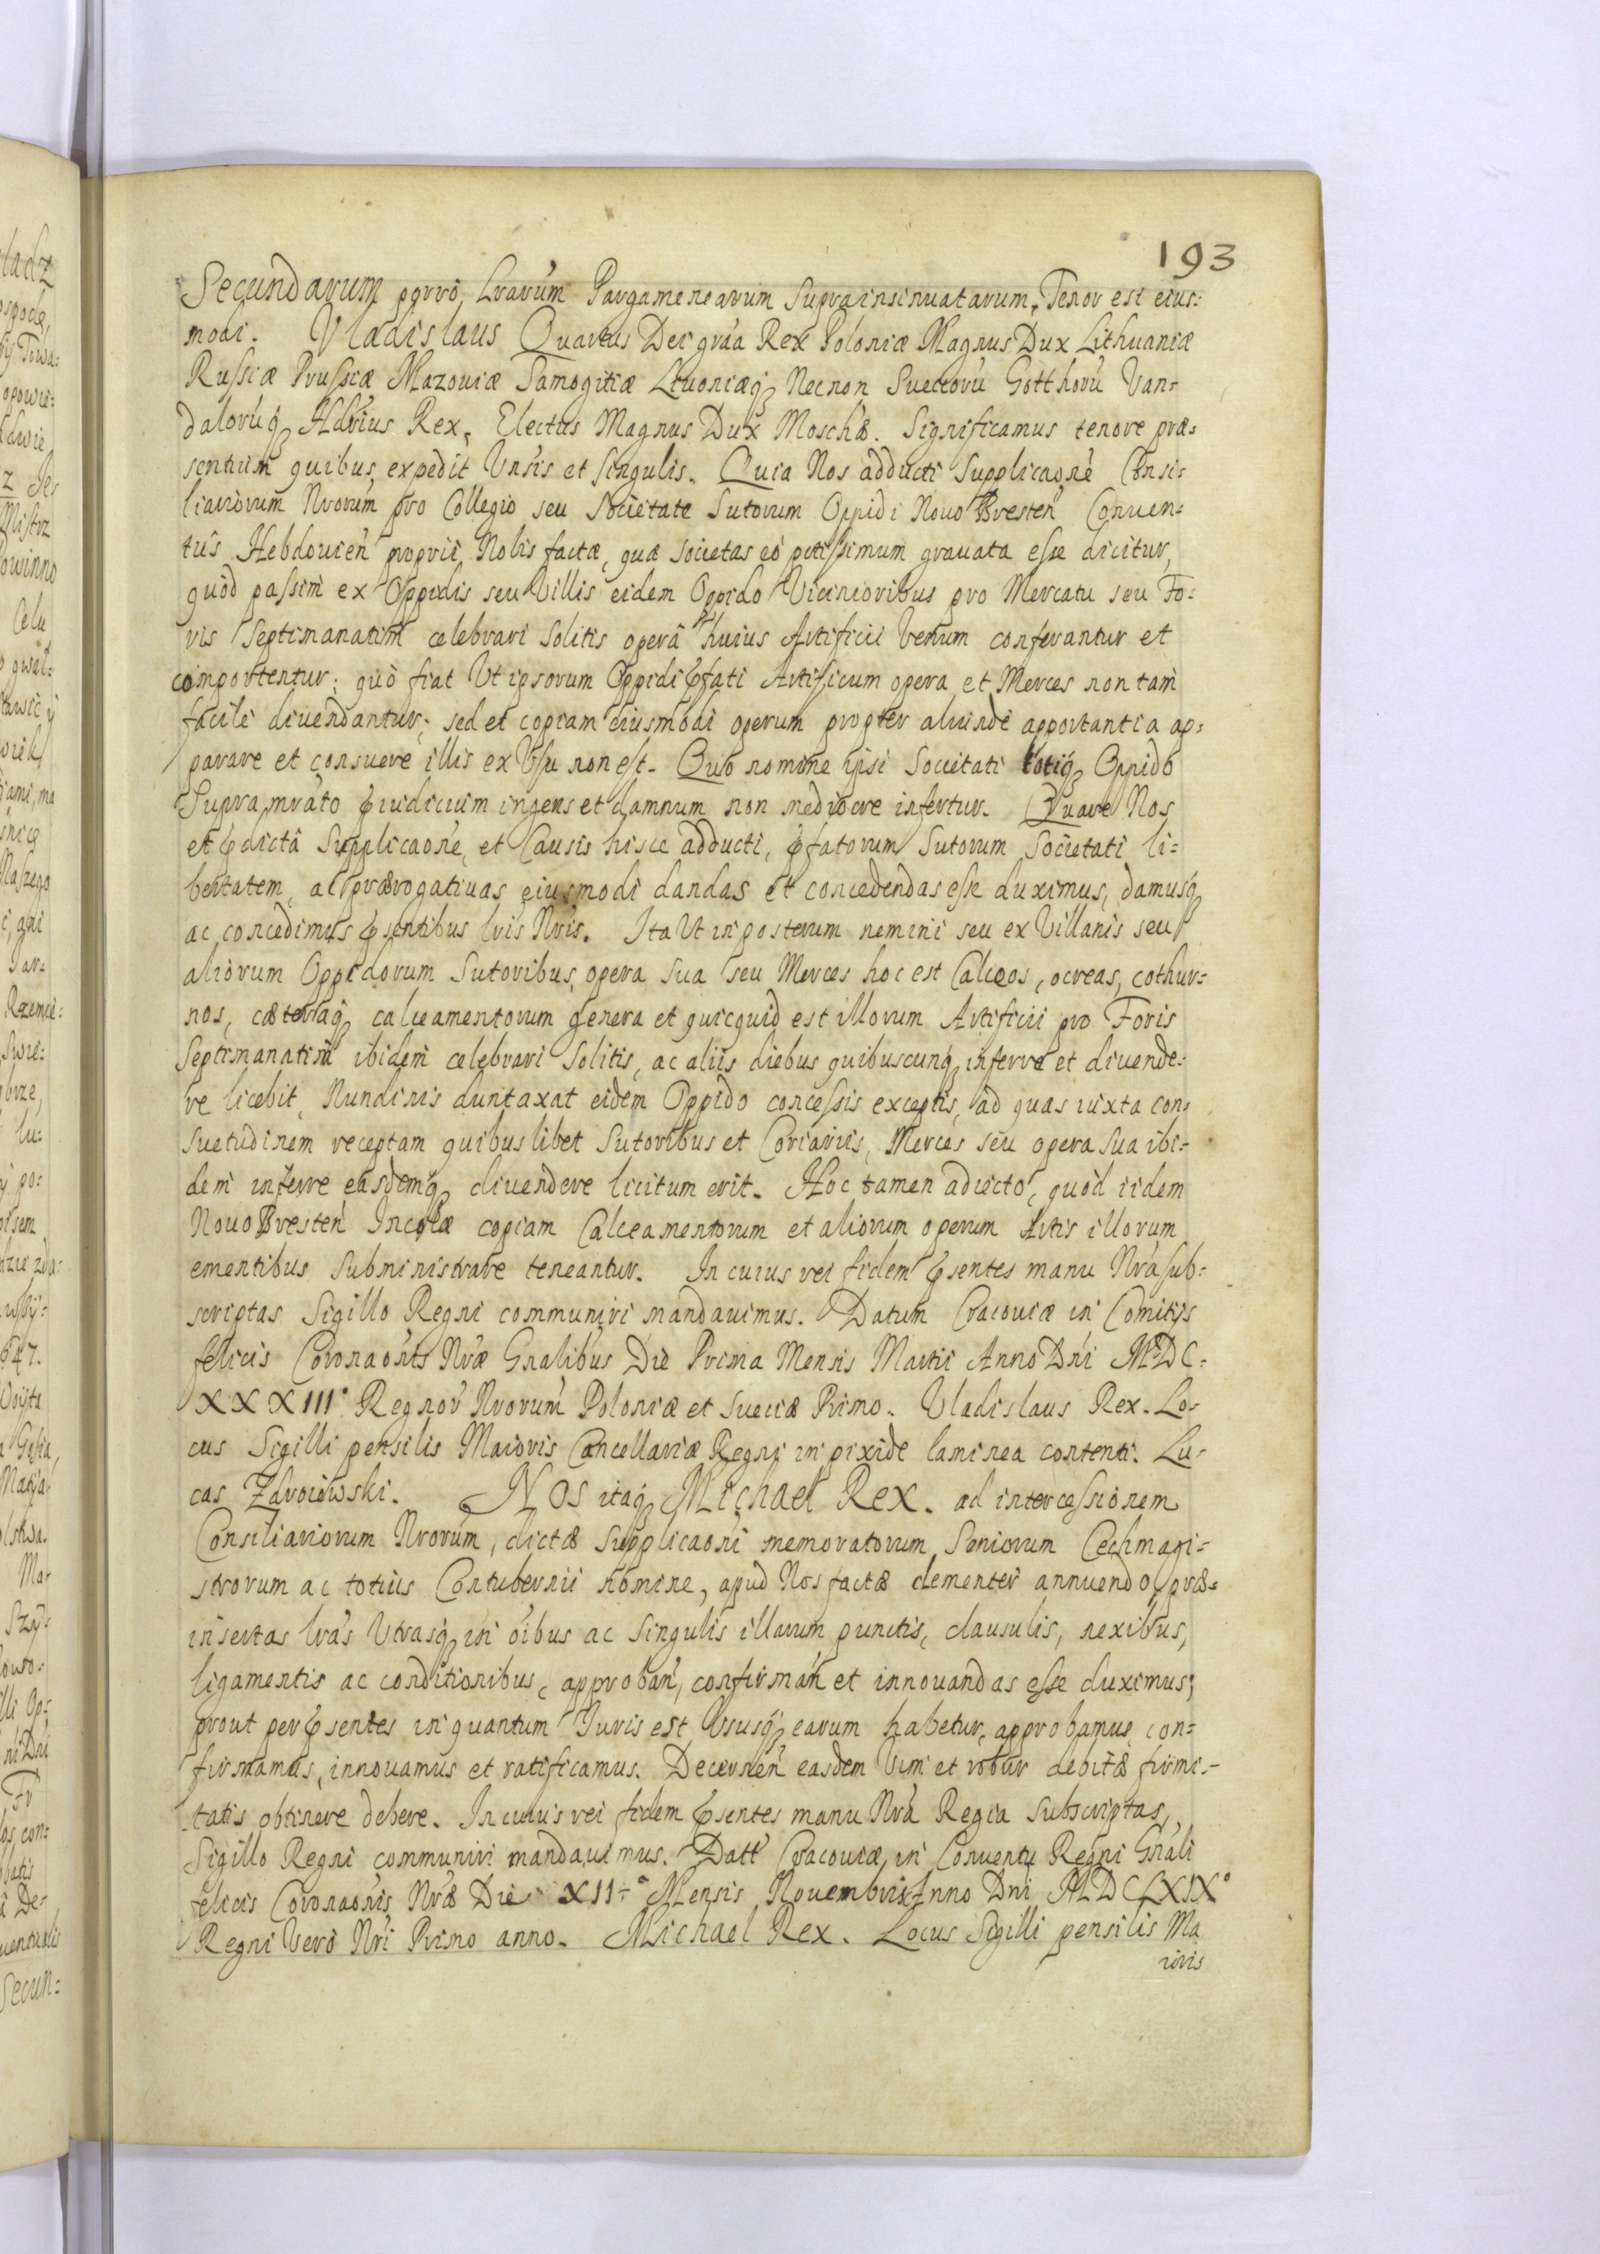 193
Secundarum porro, Lrarum Pargamenearum Suprainsinuatarum, Tenor est eius:
modi. Vladislaus Quartus Dei grãa Rex Poloniæ Magnus Dux Lithuaniæ
Russiæ Prussiæ Mazouiæ Samogitiæ Liuoniæq Necnon Suecorũ Gotthorũ Van-
dalorũq Hdrius Rex, Electus Magnus Dux Moschæ. Significamus tenore præ-
sentium quibus expedit Vnsis et Singulis. Quia Nos adducti Supplicaone Consi-
liariorum Nrorum pro Collegio seu Societate Sutorum Oppidi Nouo Bresteñ Conuen-
tus Hebdouieñ proprii Nobis factæ, quæ societas eò potissimum grauata esse dicitur,
quòd passim ex Oppidis seu Villis eidem Oppido Vicinioribus pro Mercatu seu Fo-
ris Septimanatim celebrari solitis operâ huius Artificii Venum conferantur et
comportentur; quò fiat Ut ipsorum Oppidi Pfati Artificum opera et Merces non tam
facilè diuendantur; sed et copiam eiusmodi operum propter aliunde apportantia ap-
parare et consuere illis ex Vsu non est. Quo nomine ipsi Societati totiq Oppido
Supra mrato Piudicium ingens et damnum non mediocre infertur. Quare Nos
et Pdictâ Supplicaone, et Causis hisce adducti, Pfatorum Sutorum Societati li-
bertatem, ac prærogatiuas eiusmodi dandas et concedendas esse duximus, damusq
ac concedimus Psentibus lris Nris. Ita Ut in posterum nemini seu ex Villanis seu
aliorum Oppidorum Sutoribus, opera sua seu Merces hoc est Calceos, ocreas, cothur-
nos, cæteraq calceamentorum genera et quicquid est illorum Artificii pro Foris
Septimanatim ibidem celebrari Solitis, ac aliis diebus quibuscunq inferre et diuende-
re licebit, Nundinis duntaxat eidem Oppido concessis exceptis, ad quas iuxta con-
suetudinem receptam quibuslibet Sutoribus et Coriariis, Merces seu opera sua ibi-
dem inferre easdemq diuendere licitum erit. Hoc tamen adiecto, quòd iidem
Nouo Bresteñ Incolæ copiam Calceamentorum et aliorum operum Artis illorum
ementibus Subministrare teneantur. In cuius rei fidem Psentes manu Nrã sub-
scriptas Sigillo Regni communiri mandauimus. Datum Cracouiæ in Comitijs
felicis Coronaonis Nræ Gnalibus Die Prima Mensis Martii Anno Dni MDC
XXXIII° Regnor Nrorum Poloniæ et Sueciæ Primo. Vladislaus Rex. Lo-
cus Sigilli pensilis Maioris Cancellariæ Regni in pixide laminea contenti. Lu-
cas Zdroiowski. Nos itaq Michael Rex. ad intercessionem
Consiliariorum Nrorum, dictæ Supplicaoni memoratorum Seniorum Cechmagi-
strorum ac totius Contubernii nomine, apud Nos factæ clementer annuendo, præ-
insertas lras Utrasq in oibus ac Singulis illarum punctis, clausulis, nexibus,
ligamentis ac conditionibus, approbañ, confirmañ et innouandas esse duximus;
prout per Psentes in quantum Iuris est, Vsusq earum habetur, approbamus, con-
firmamus, innouamus et ratificamus. Decerneñ easdem Vim et robur debitæ firmi-
tatis obtinere debere. In cuius rei fidem Psentes manu Nrã Regia Subscriptas,
Sigillo Regni communiri mandauimus. Datt Cracouiæ in Conuentu Regni Gnali
felicis Coronaonis Nræ Die XII° Mensis Nouembris Anno Dni MDCLXIX°
Regni Verò Nri Primo anno. Michael Rex. Locus Sigilli pensilis Ma
ioris